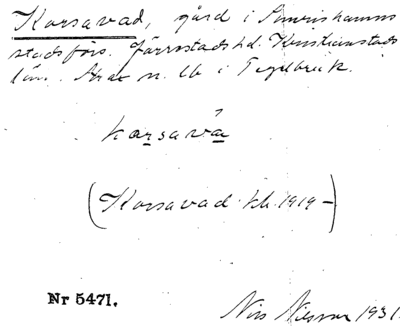 Korsavad, gård i Simrishamns
stadsförs. Järrestads hd. Kristianstads
län. n. 16 i Tegelbruk.
korsavā
(Korsavad kb. 1919-)
Nr 5471.
Nils Nilsson 1931.